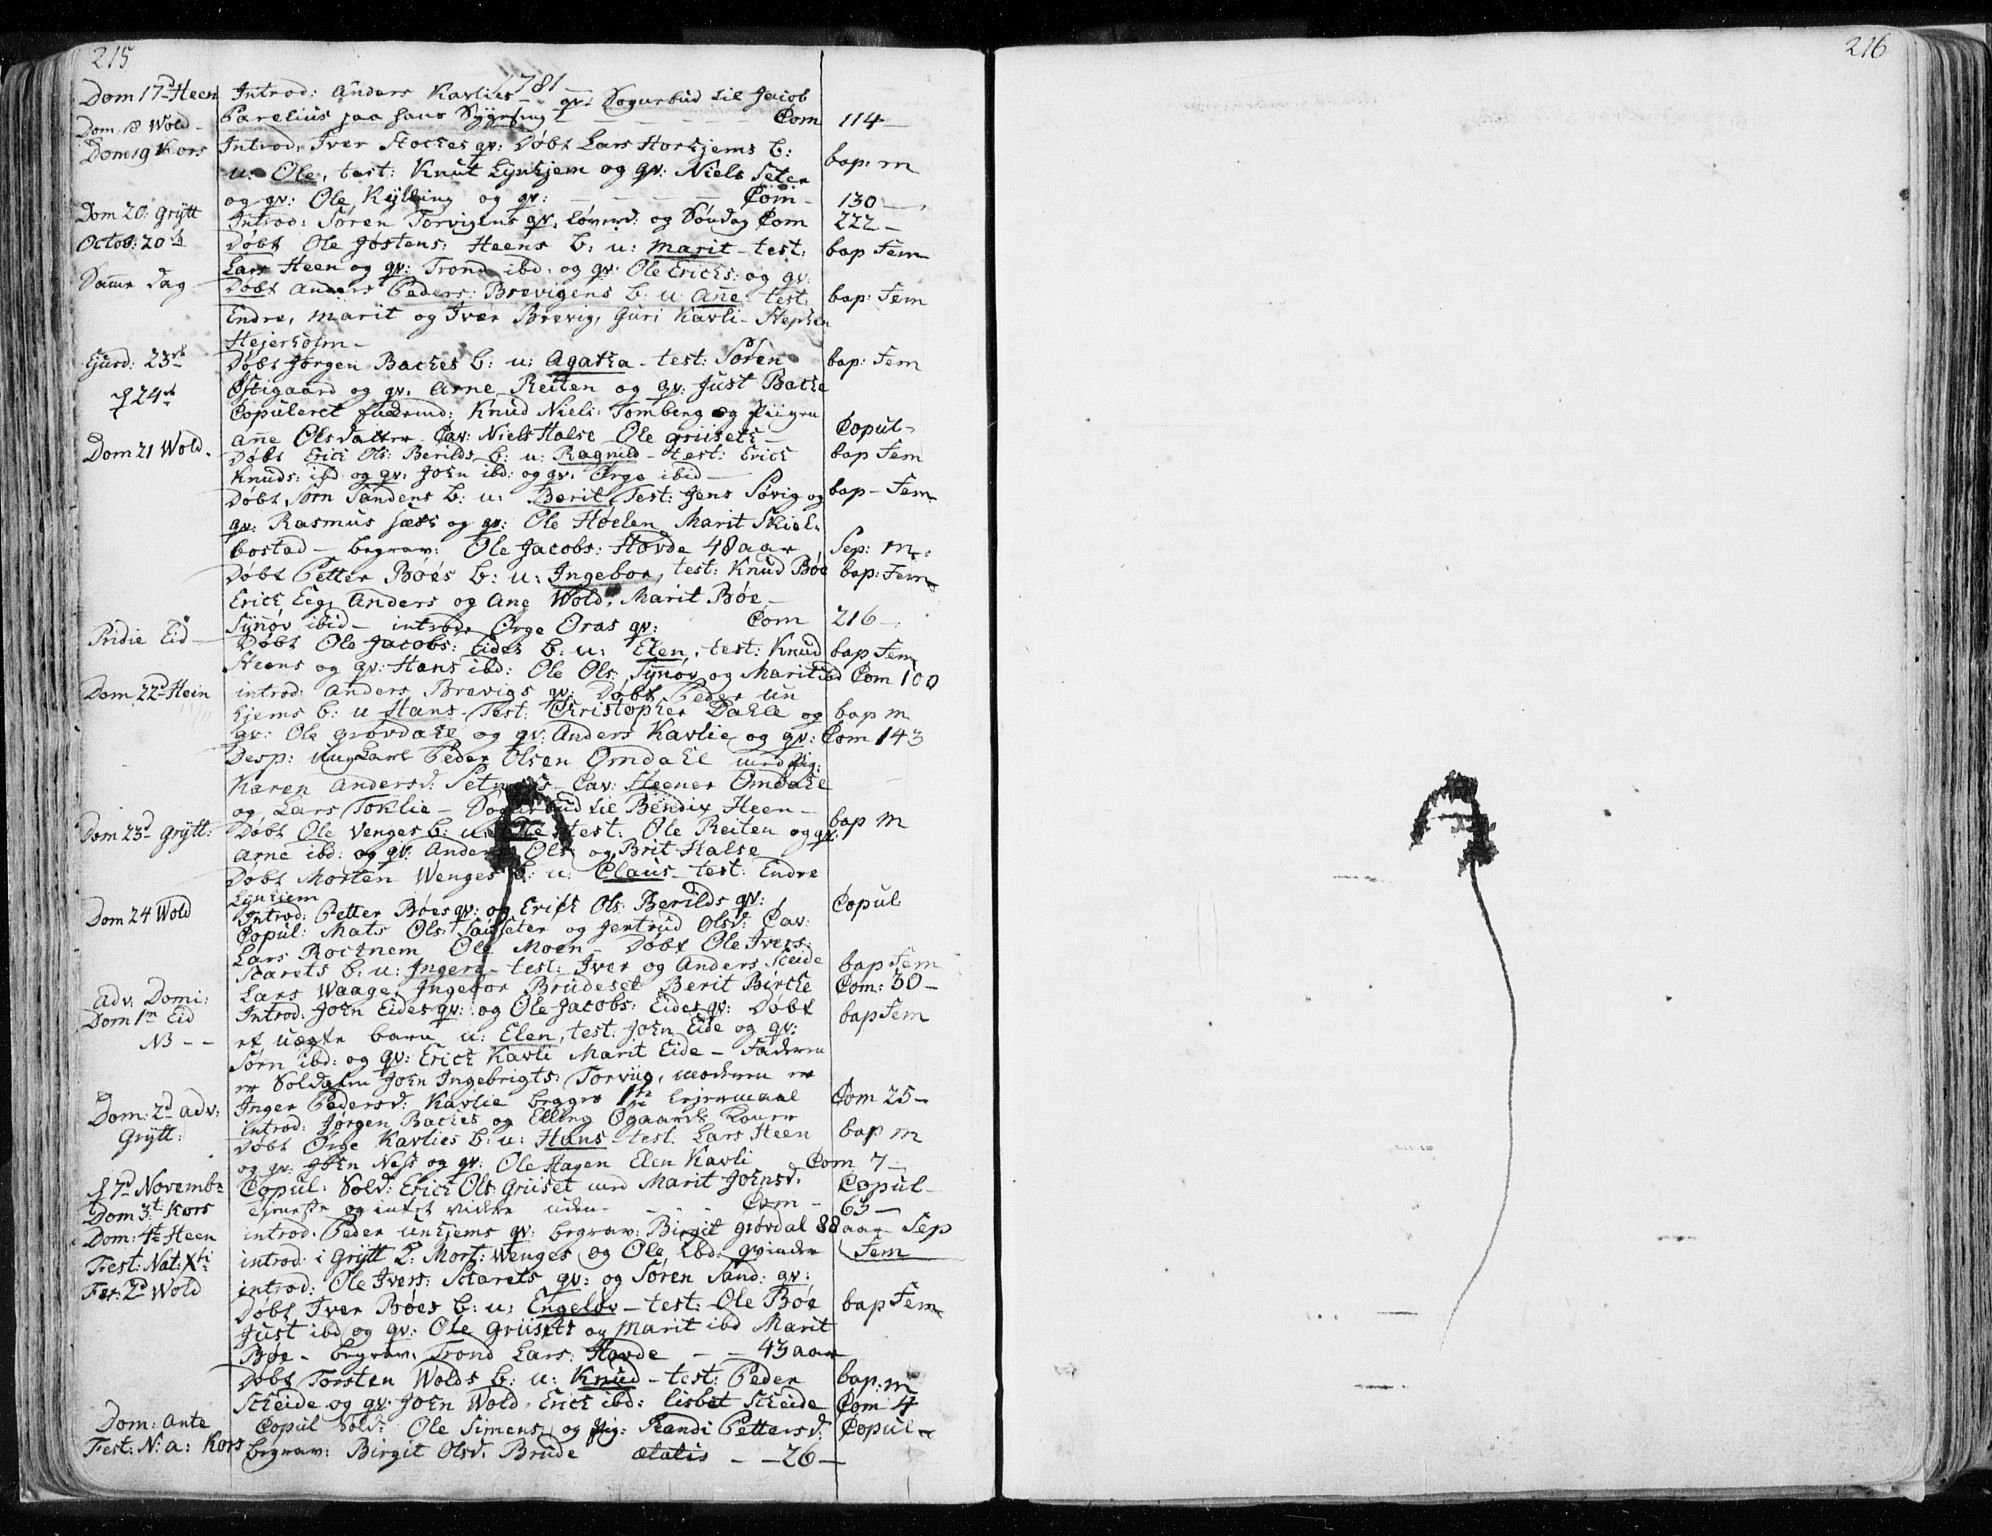 215
1781
Dom 17 Heen Introd: Anders Kavlies qv: Sognebud til Jacob
Dom 18 Wold Parelius paa hans Sygeseng Com 114
Dom 19 Kors Introd: Iver Stockes qv: Døbt Lars Horhjems b:
u: Ole, test: Knut Lynhjem og qv: Niels Seter bap: m
og qv: Ole Kylling og qv: Com 130
Dom 20: Grÿtt Introd: Søren Torvigens qv: Løverd: og Søndag Com 222
Octob: 20 Døbt Ole Jostens: Heens b: u: Marit - test: bap Fem
Lars Heen og qv: Trond ibd: og qv: Ole Erichs: og qv:
Samme Dag Døbt Anders Peders: Brevigens b: u: Anne - test: bap: Fem
Endre, Marit og Iver Brevig, Guri Kavli - Stephen
Hejerholm -
23 Døbt Jørgen Backes b: u: Agatha - test: Søren bap: Fem
Østigaard og qv: Arne Reiten og qv: Just Backe
24 Copuleret Knud Niels: Tomberg og Piigen
Anne Olsdatter - Cav: Niels Halse Ole Griisets - Copul -
Dom 21 Wold - Døbt Erich Ols: Berilds b: u: Ragnild - test: Erich bap Fem
Knuds: ibd og qv: John ibd: og qv: Ørge ibid -
Døbt Sørn Sandens b: u: Berit, Test: Jens Søvig og bap - Fem
qv: Rasmus og qv: Ole Høelen Marit Skiel-
bostad - begrav: Ole Jacobs: Hovde 48 aar Sep: m:
Døbt Petter Bøes b: u: Ingebor, test: Knud Bøe bap: Fem
Erich Eeg, Anders og Ane Wold, Marit Bøe -
Synøv ibid - introd: Ørge Oras qv: Com 216 -
Pridie Eid - Døbt Ole Jacobs: Eides b: u: Elen, test: Knud bap Fem
Heens og qv: Hans ibd: Ole Ols: Synøv og Marit ibd Com 100
Dom 22 Hein introd: Anders Brevigs qv: Døbt Peder Un
hjems b: u: Hans - Test: Christopher Dahle og bap m
qv: Ole Grøvdahl og qv: Anders Kavlie og qv: Com 143
Desp: Ungkarl Peder Olsen Omdahl med Pig:
Karen Andersd: - Cav: Steener Omdahl
og Lars Toklie - Sognebud til Bendix Heen -
Dom 23 Grÿtt: Døbt Ole Venges b: u: Ole test: Ole Reiten og qv: bap m
Arne ibd: og qv: Anders Ols: og Brit Halse
Døbt Morten Wenges b: u: Claus - test: Endre
Lynhiem
Dom 24 Wold Introd: Petter Bøes qv: og Erich Ols: Berilds qv:
Copul: Mats Ols: og Jertrud Olsd: Cav: Copul
Lars Rochnem Ole Moen - Døbt Ole Ivers:
Starets b: u: Ingera - test: Iver og Anders Scheide bap Fem
Lars Waage, Ingebor Brudeset Berit Birche Com: 30 -
Adv: Domi:
Dom 1 Eid Introd: John Eides qv: og Ole Jacobs: Eides qv: Døbt
NB - - et uægte barn u: Elen, test: John Eide og qv: bap Fem
Sørn ibd: og qv: Erich Kavli Marit Eide - Faderen
er Soldaten John Ingebrigts: Torviig, moderen er
Inger Pedersd: Kavlie begges 1 leiermaal
Dom: 2 Adv: Grÿtt: introd: Jørgen Backes og Elling Øgaards Koner Com 25 -
Døbt Ørge Kavlies b: u: Hans - test. Lars Heen bap m
og qv: John Ness og qv: Ole Hagen Elen Kavli Com 7 -
7 Novemb: Copul: Sold: Erich Ols: Griiset med Marit Johnsd: Copul -
Dom 3 Kors tieneste og intet videre uden - Com - 63 -
Dom: 4 Heen introd: Peder Unhjems qv: begrav: Birgit Grøvdal 88 aar Sep
Fest: Nat: Xti introd: i Grÿtt Mort: Wenges og Ole ibd: qvinder Fem
Fer: 2 Wold introd: Ole Ivers: Starets qv: og Søren Sand: qv:
Døbt Iver Bøes b: u: Engeløv - test: Ole Bøe bap Fem
Just ibd og qv: Ole Griisets og Marit ibd Marit
Bøe - begrav: Trond Lars: Hovde - - 43 aar
Døbt Torsten Wolds b: u: Knud - test: Peder bap: m
Scheide og qv: John Wold, Erich ibd: Lisbet Scheide Com 4
Dom: Ante Copul Sold: Ole Simens: og Pig: Randi Pettersd: Copul -
Fest: N: a: Kors begrav: Birgit Olsd: Brude ætatis - - 26 -
216